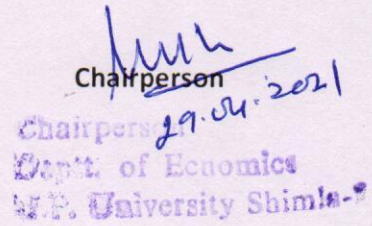 Chairperson
29.04.2021
Chairperson
Deptt. of Economics
H.P. University Shimla-5